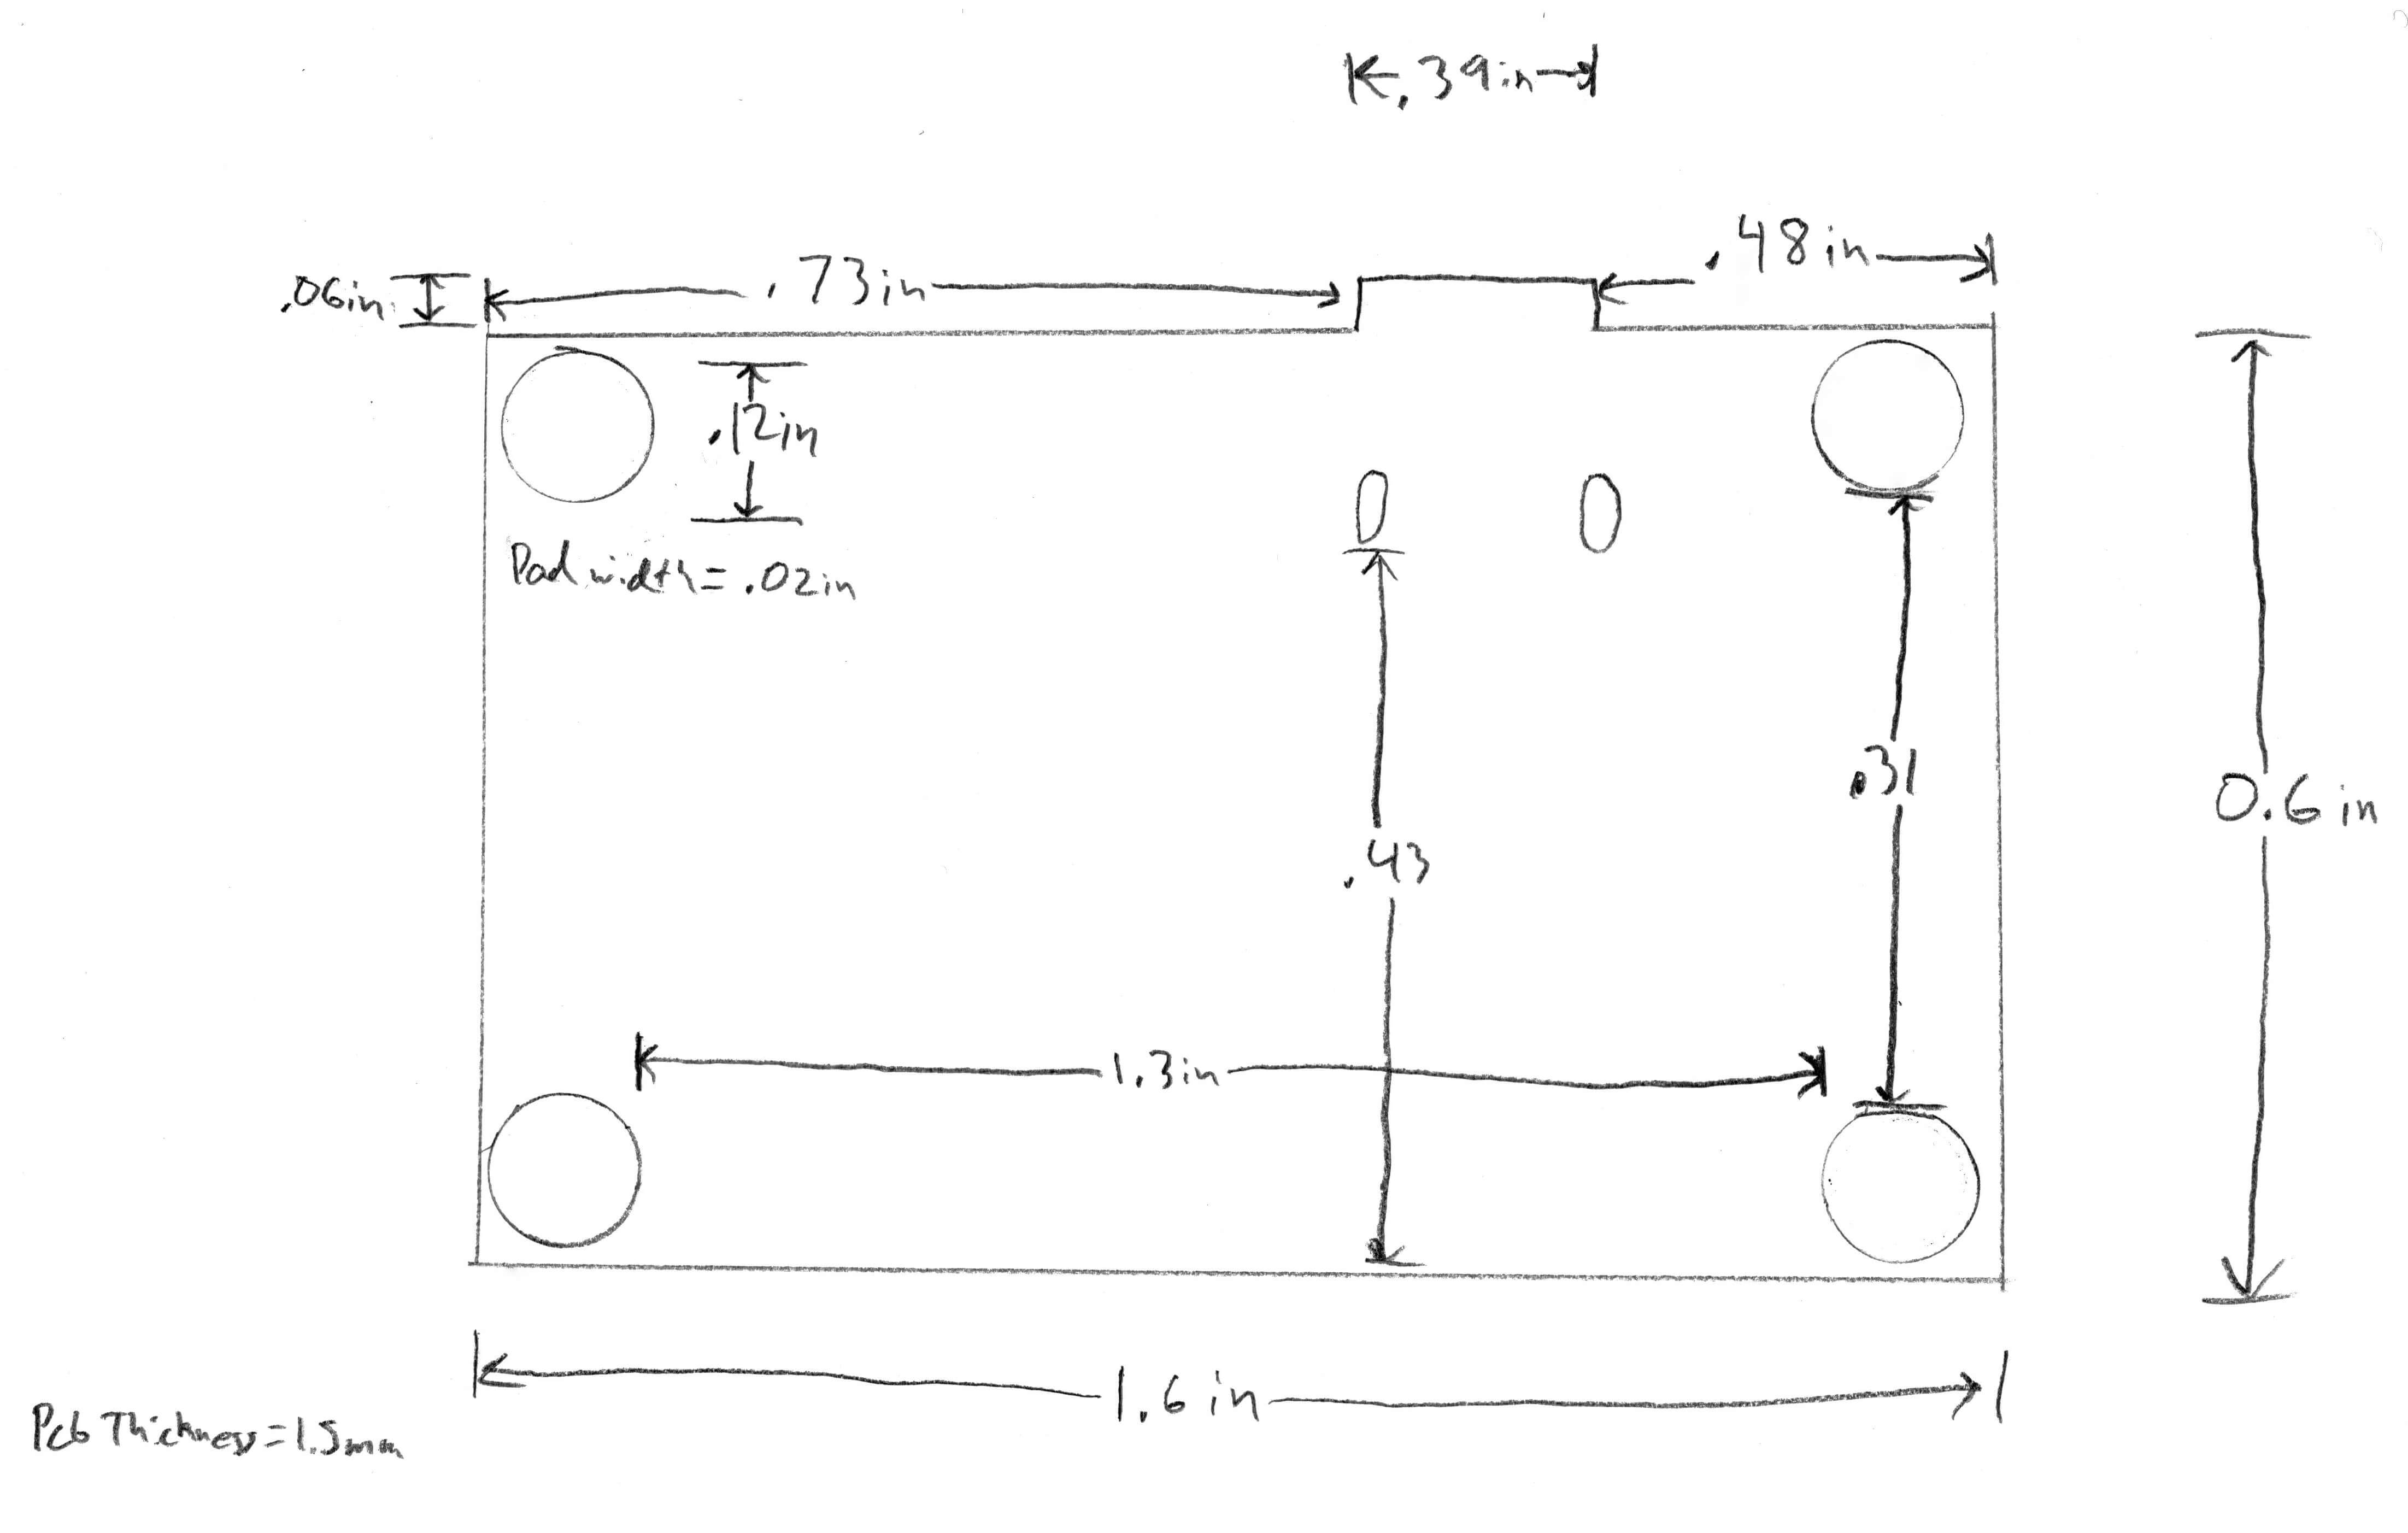 .39in
.48in
.73in
.06in
.12in
Pad width = .02in
.31
0.6 in
.43
1.3in
1.6 in
Pcb Thickness = 1.5mm